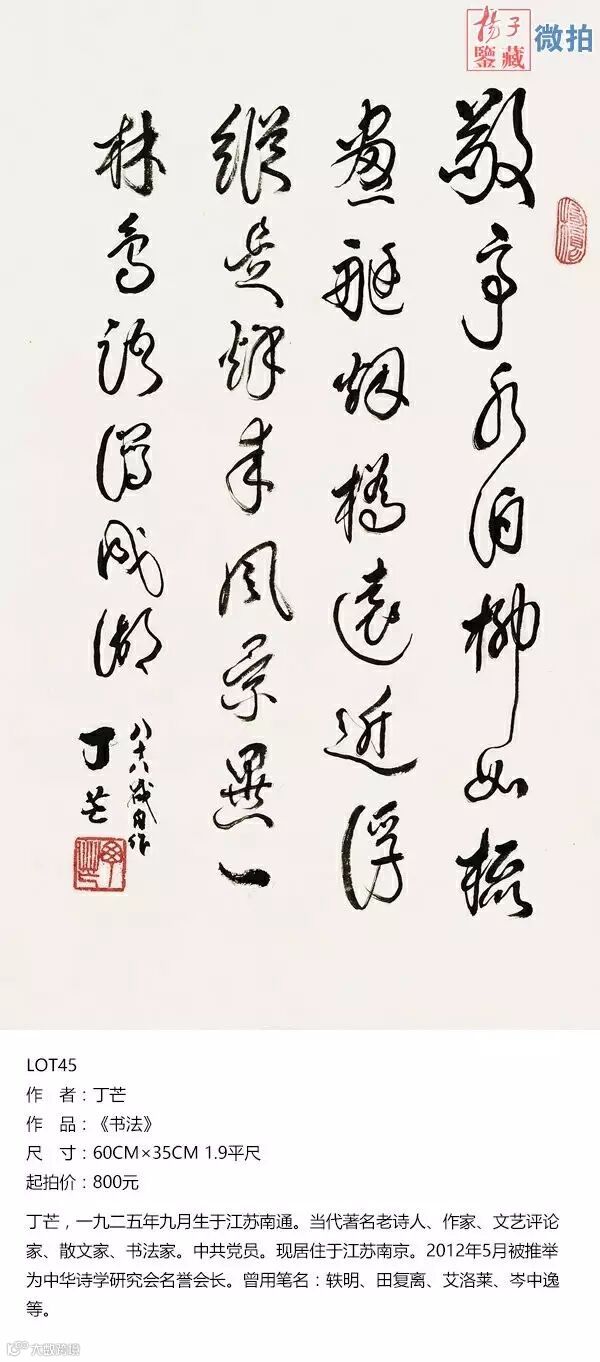 揚子
鑒藏
微拍
敬亭水泊柳如梳
畫艇烟橋遠近浮
縱是来风景異一
林鸟語成湖
八十八岁自作
丁芒
LOT45
作 者：丁芒
作 品：《书法》
尺 寸：60CM×35CM 1.9平尺
起拍价：800元
丁芒，一九二五年九月生于江苏南通。当代著名老诗人、作家、文艺评论
家、散文家、书法家。中共党员。现居住于江苏南京。2012年5月被推举
为中华诗学研究会名誉会长。曾用笔名：轶明、田复离、艾洛莱、岑中逸
等。
大数跨境